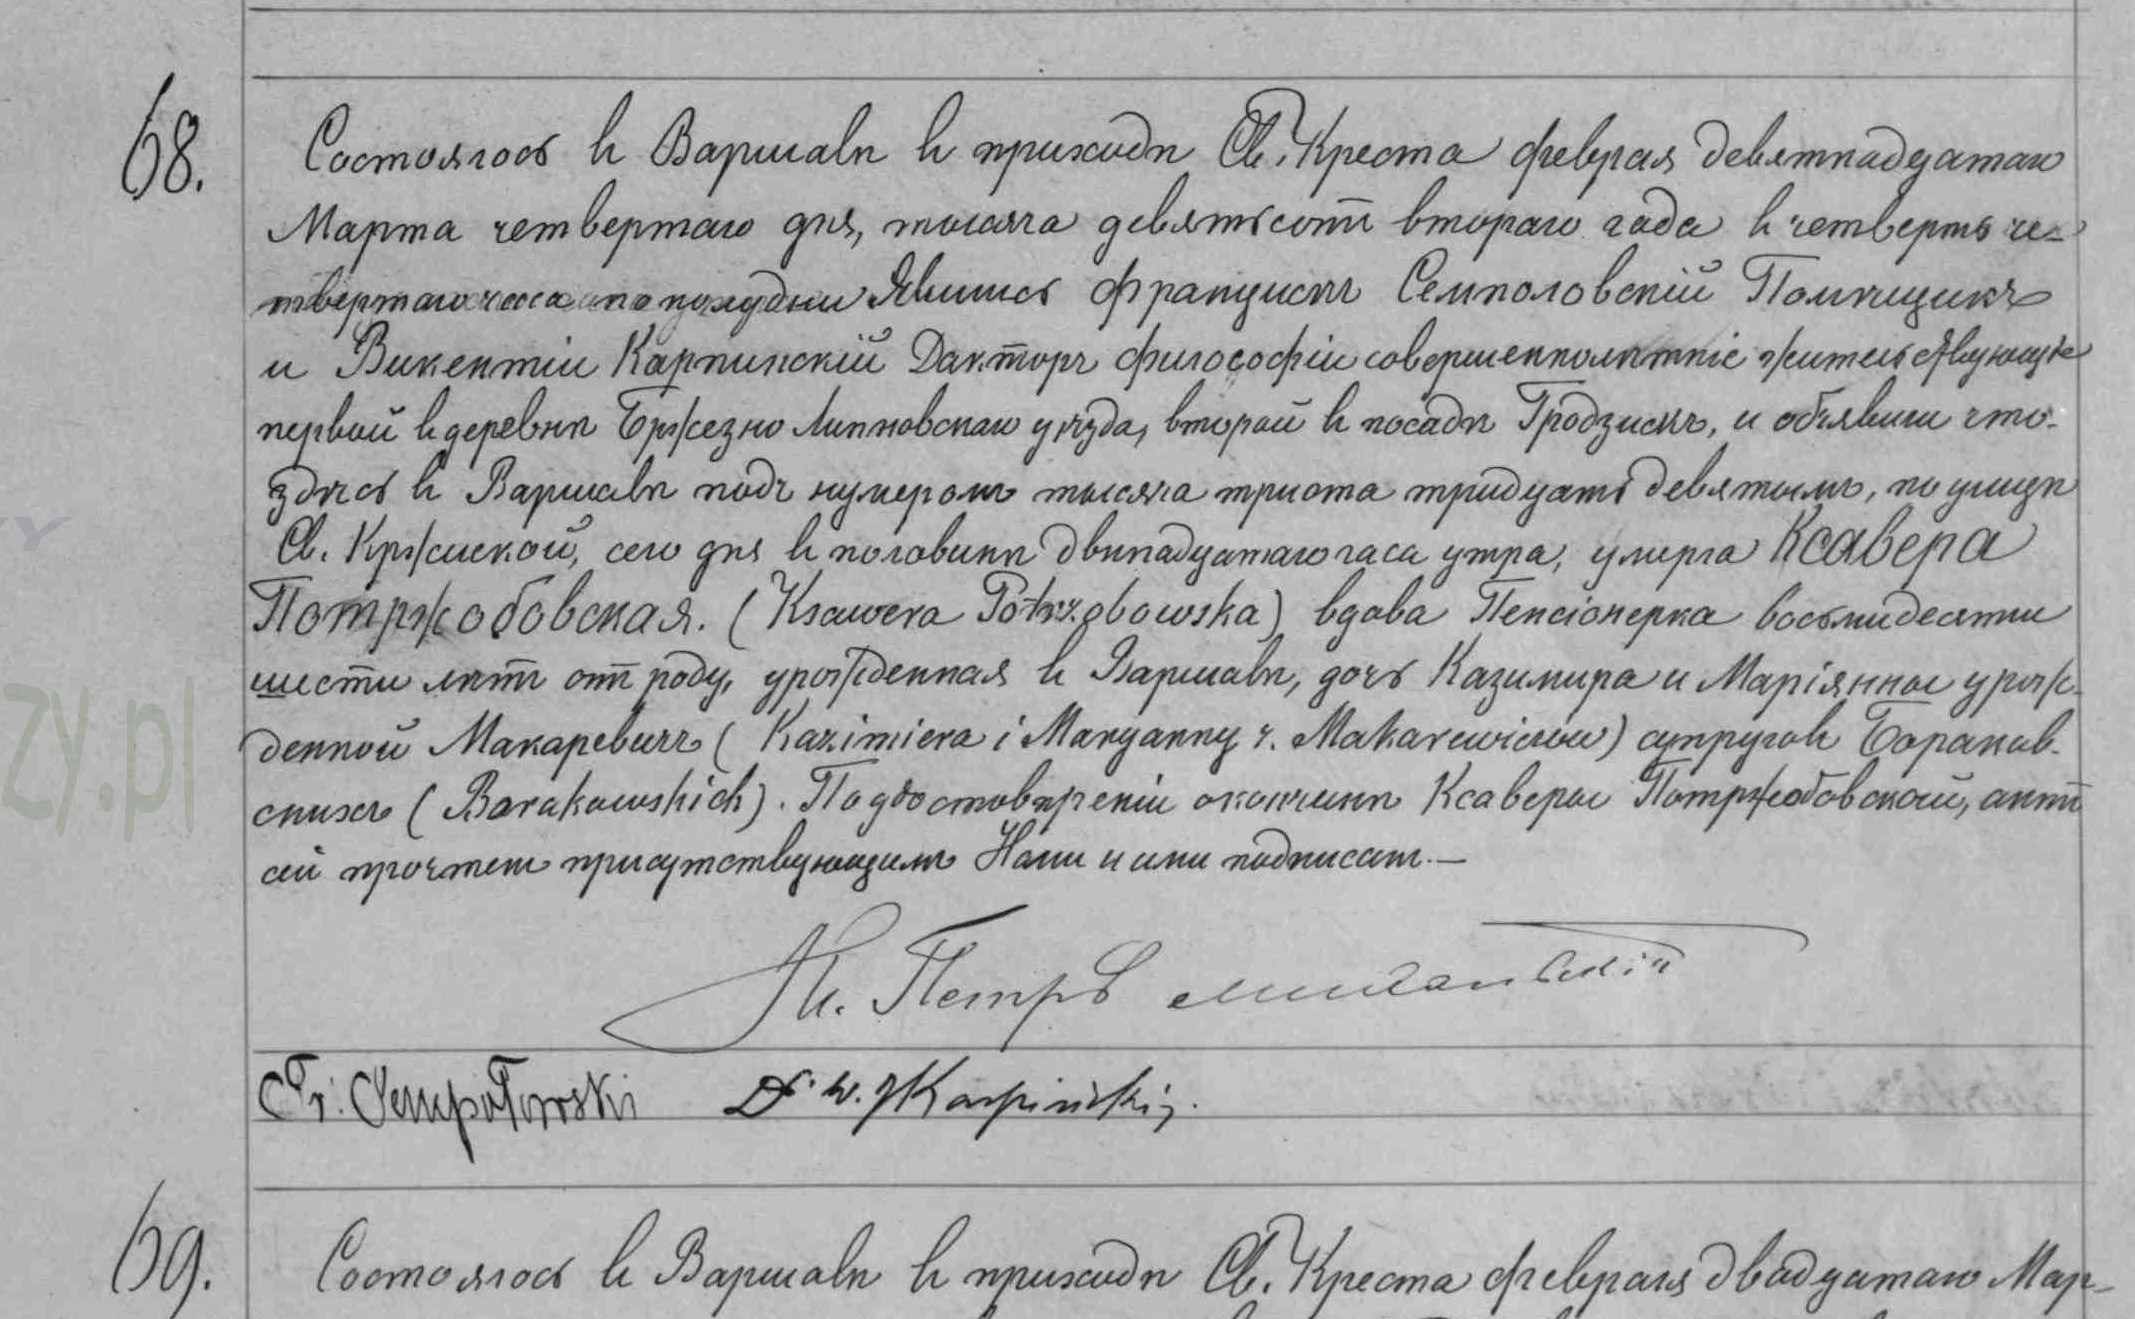 68.
Состоялось въ Варшавѣ въ приходѣ Св. Креста февраля девятнадцатаго
Марта четвертаго дня, тысяча девятьсотъ втораго года въ четверть че-
твертаго часа по полудни Явились Францискъ Семполовскій Помѣщикъ
и Викентій Карпинскій Докторъ философіи совершеннолѣтніе жительствующіе
первый въ деревнѣ Бржезно Липновскаго уѣзда, второй въ посадѣ Гродзискъ, и объявили что-
здѣсь въ Варшавѣ подъ нумеромъ тысяча триста тридцать девятымъ, по улицѣ
Св. Кржиской, сего дня въ половинѣ двѣнадцатаго часа утра, умерла Ксавера
Потржобовская. (Ksawera Potrzobowska) вдова Пенсіонерка восьмидесяти
шести лѣтъ отъ роду, урожденная въ Варшавѣ, дочь Казимира и Маріянны урож-
денной Макаревичъ (Kazimiera i Maryanny z. Makarewiczów) супруговъ Бораков-
скихъ (Borakowskich). По удостовѣреніи о кончинѣ Ксаверы Потржобовской, актъ
сей прочтенъ присутствующимъ Нами и ими подписанъ.—
Кс. Петръ
Fr. Sempołowski D. W. Karpiński
69.
Состоялось въ Варшавѣ въ приходѣ Св. Креста февраля двадцатаго Мар-
zy.pl